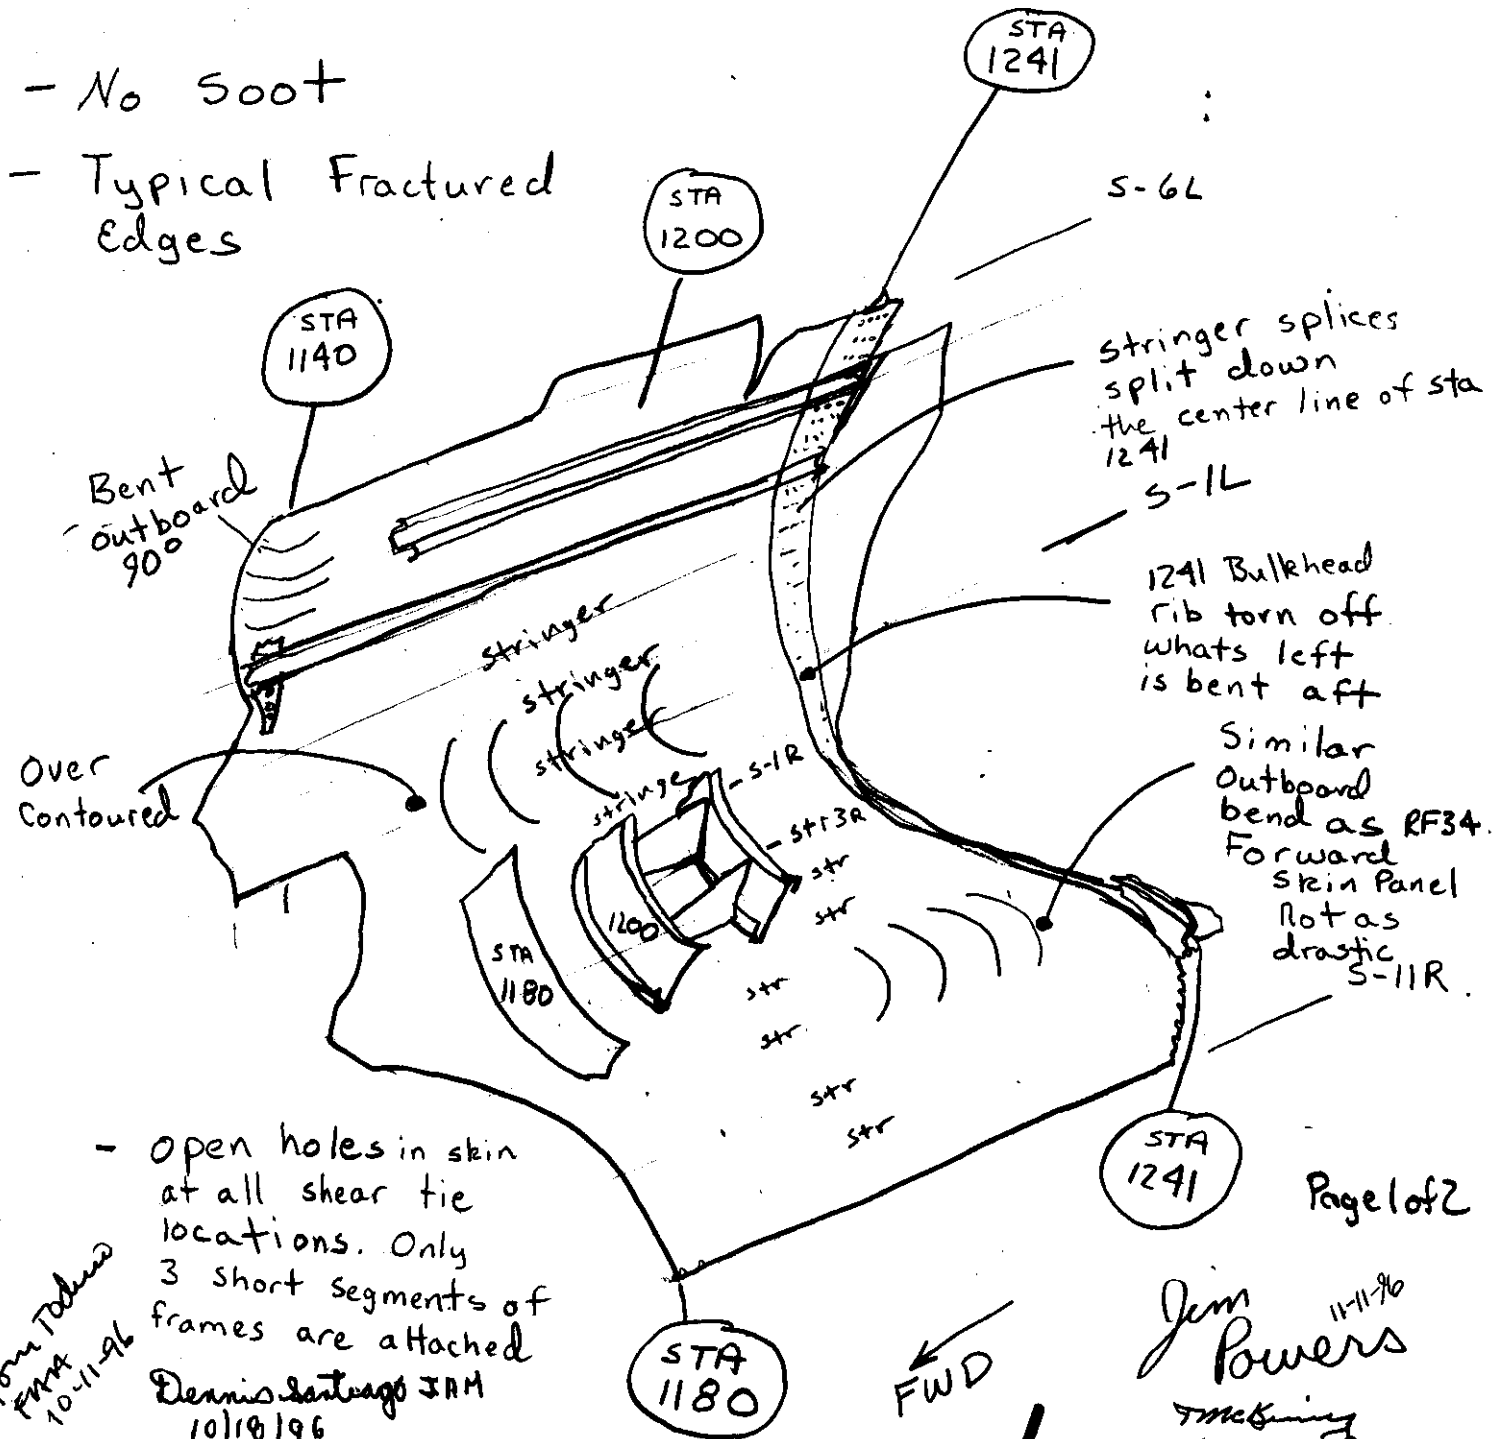 - No Soot
- Typical Fractured
Edges
STA
1241
STA
1200
STA
1140
S-6L
stringer splices
split down
the center line of sta
1241
S-1L
Bent
outboard
90°
1241 Bulkhead
rib torn off
whats left
is bent aft
stringer
stringer
stringer
stringe
S-1R
str 3R
str
str
str
str
str
str
Over
Contoured
Similar
Outboard
bend as RF34.
Forward
Skin Panel
Not as
drastic
S-11R.
1200
STA
1180
STA
1241
- open holes in skin
at all shear tie
locations. Only
3 short segments of
frames are attached
STA
1180
FWD
Page 1 of 2
FAA
10-11-96
Dennis Santiago IAM
10/18/96
Jim
Powers
11-11-96